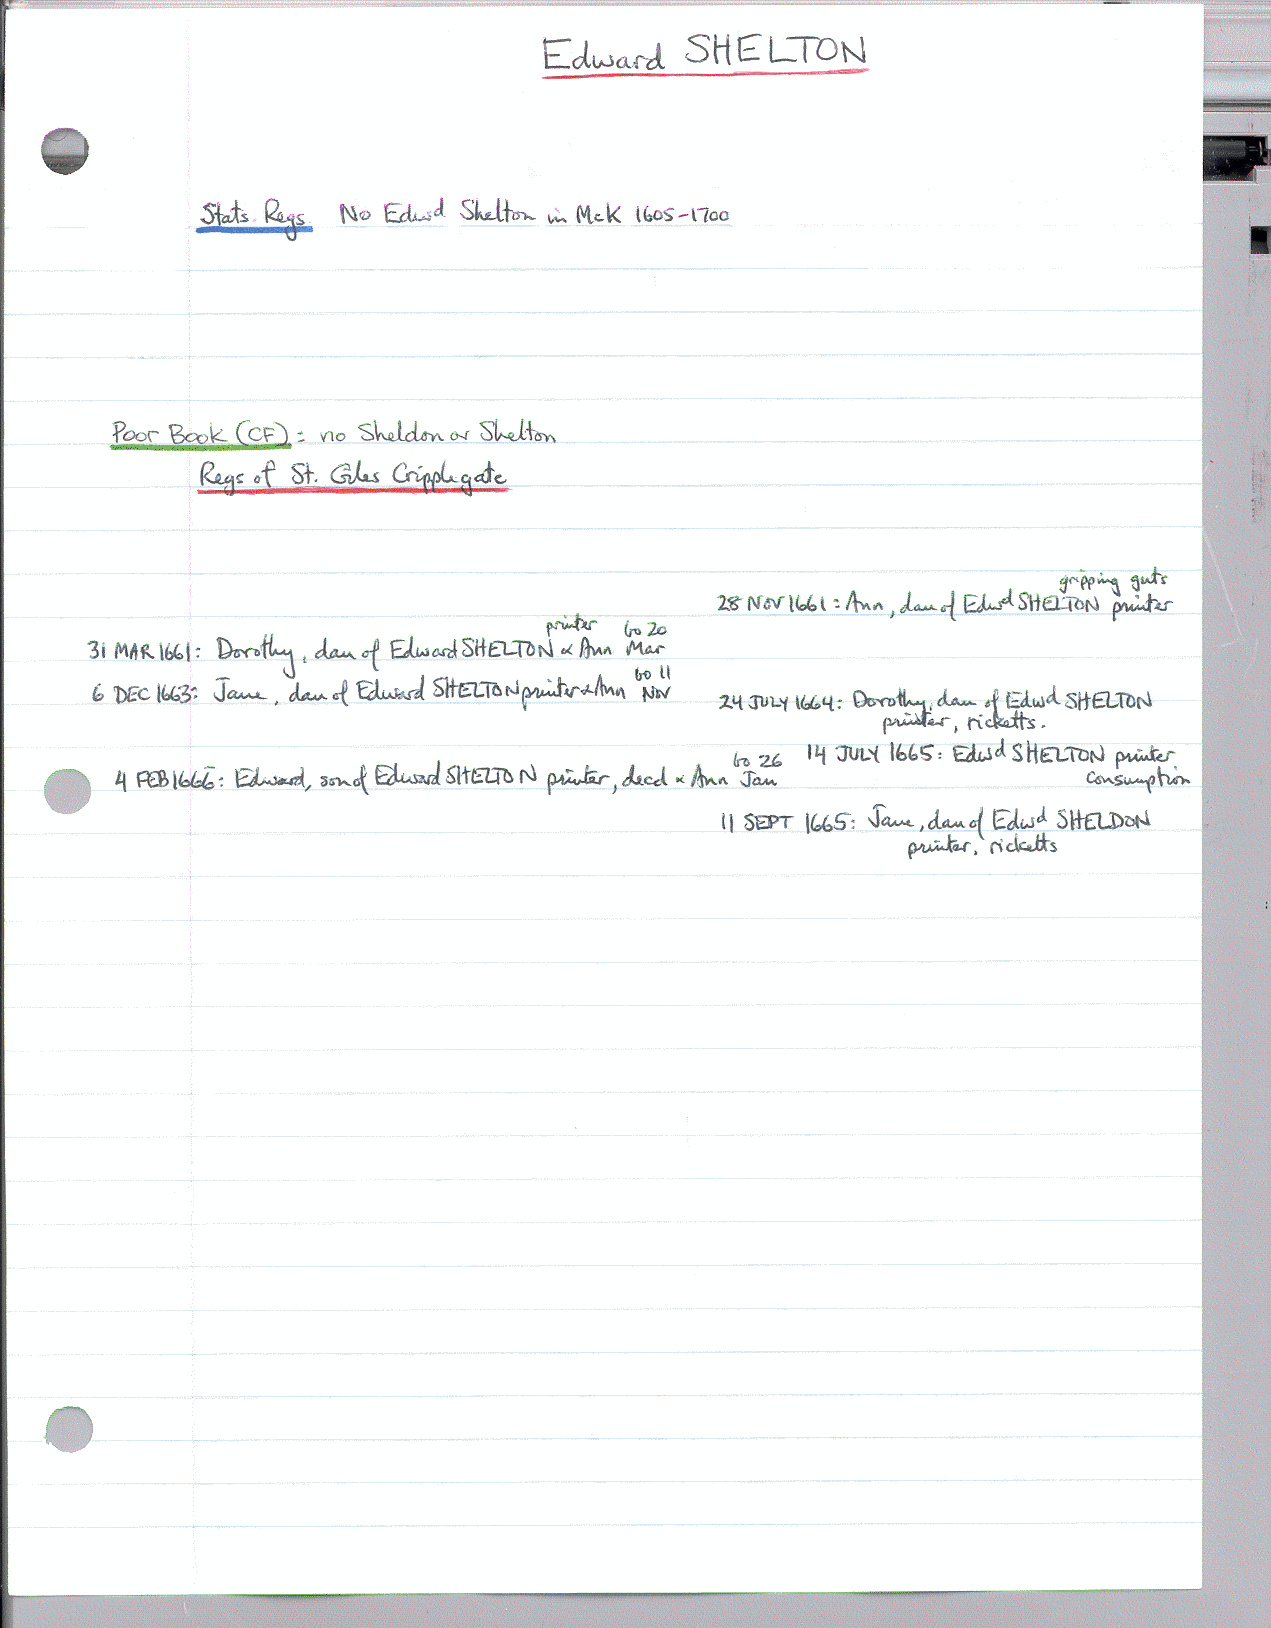 Edward SHELTON
Stats. Regs. No Edwd Shelton in McK 1605-1700
Poor Book (CF): no Sheldon or Shelton
Regs of St. Giles Cripplegate
gripping guts
28 NOV 1661: Ann, dau of Edwd SHELTON printer
printer bo 20
31 MAR 1661: Dorothy, dau of Edward SHELTON & Ann Mar
bo 11
6 DEC 1663: Jane, dau of Edward SHELTON printer & Ann NOV
24 JULY 1664: Dorothy, dau of Edwd SHELTON
printer, ricketts.
bo 26 14 JULY 1665: Edwd SHELTON printer
4 FEB 1666: Edward, son of Edward SHELTON printer, decd & Ann Jan consumption
11 SEPT 1665: Jane, dau of Edwd SHELDON
printer, ricketts